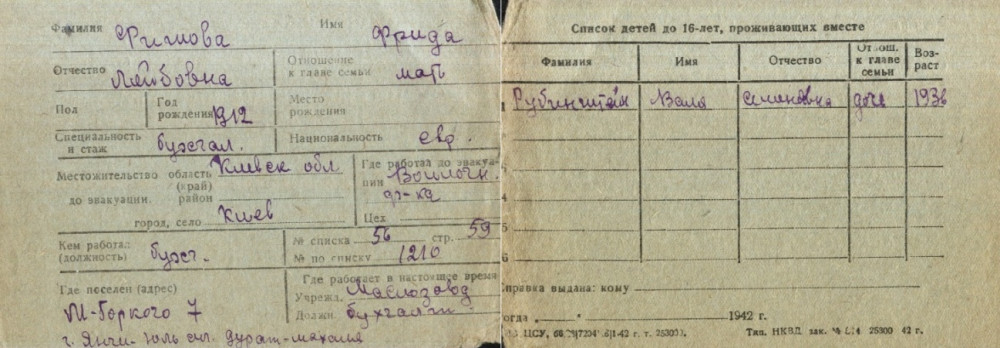 Фамилия Фишова Имя Фрида
Отчество Лейбовна Отношение к главе семьи мать
Пол Год рождения 1912 Место рождения
Специальность и стаж бухгал. Национальность евр.
Местожительство до эвакуации. область (край) Киевск обл. район
город, село Киев
Где работал до эвакуации Войлочн. ф-ка
Цех
Кем работал: (должность) бухг. № списка 56 стр. 59
№ по списку 1210
Где поселен (адрес) М-Горкого 7
г. Янги-Юль
Где работает в настоящее время
Учрежд. Маслозавод
Должн. бухгалт.
Список детей до 16-лет, проживающих вместе
Фамилия Имя Отчество Отнош. к главе семьи Возраст
1 Рубинштейн Вала семеновна доч 1936
3
4
5
6
Справка выдана: кому
" " 1942 г.
ЦСУ, Тип. НКВД зак. 25300 42 г.